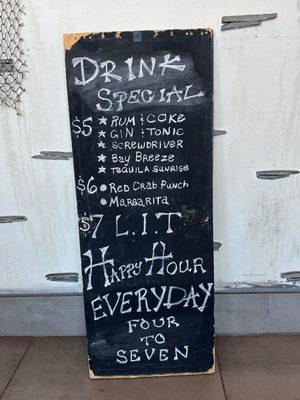 DRINK
SPECIAL
$5 ★ RUM & COKE
★ GIN & TONIC
★ SCREWDRIVER
★ BAY BREEZE
★ TEQUILA SUNRISE
$6 • RED CRAB PUNCH
• MARGARITA
$7 L.I.T
HAPPY HOUR
EVERYDAY
FOUR
TO
SEVEN